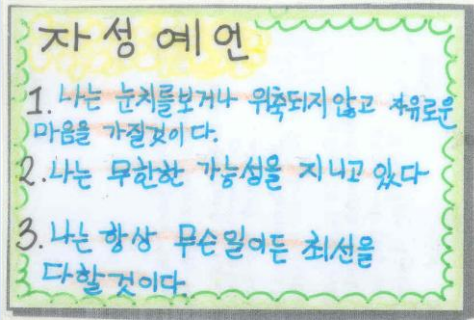 자성예언
1. 나는 눈치를보거나 위축되지않고 자유로운
마음을 가질것이다.
2. 나는 무한한 가능성을 지니고 있다
3. 나는 항상 무슨일이든 최선을
다할것이다.